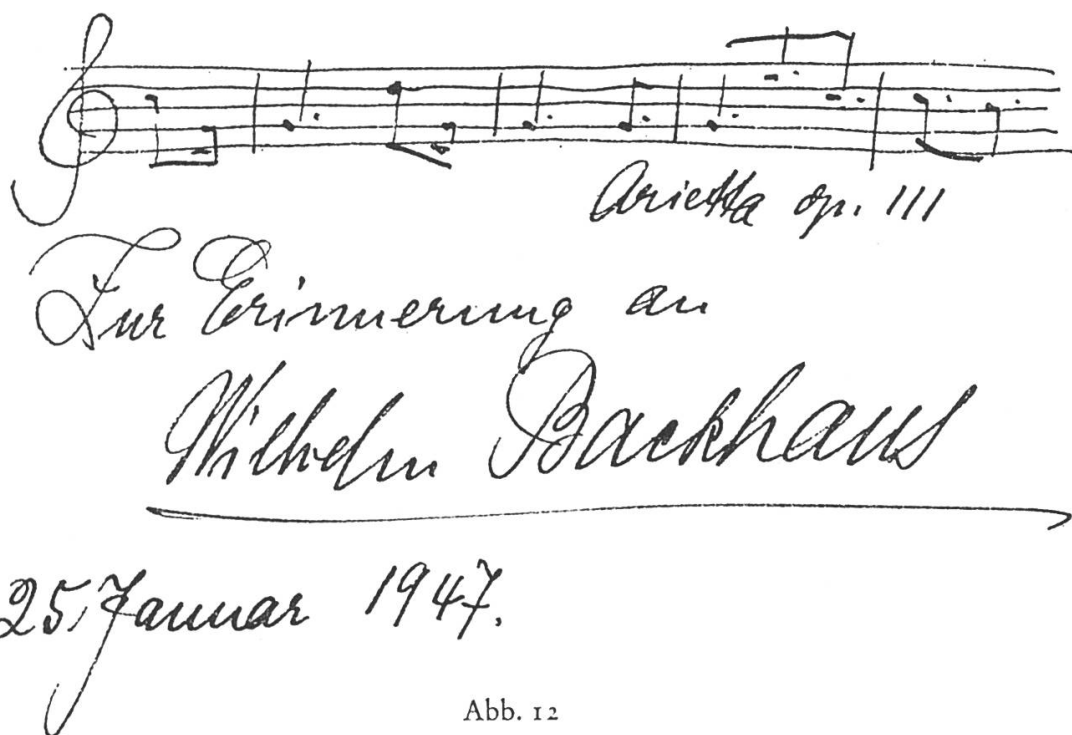 Arietta op. 111
Zur Erinnerung an
Wilhelm Backhaus
25. Januar 1947.
Abb. 12